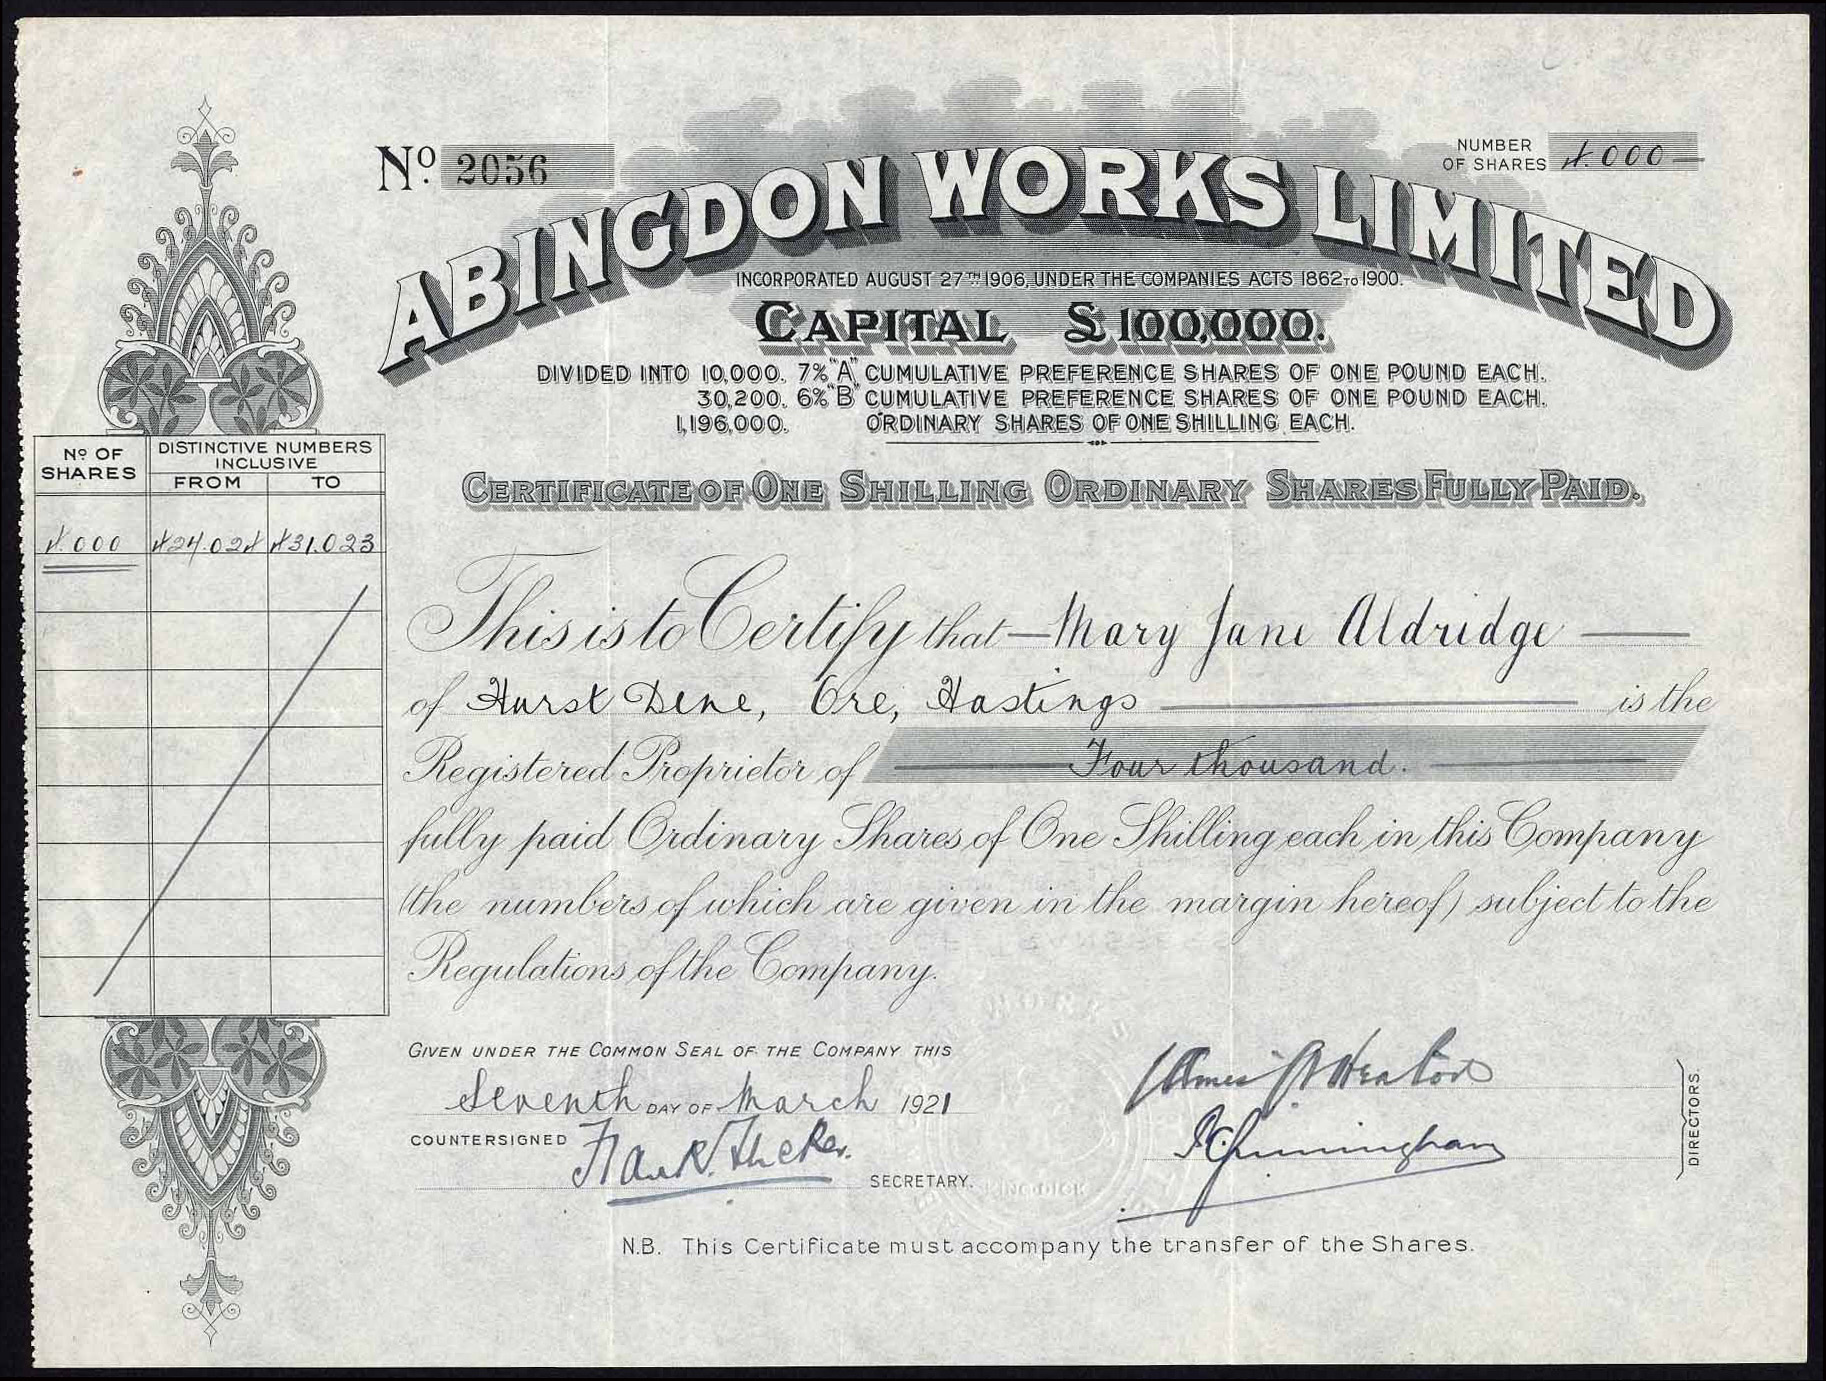 No. 2056
NUMBER OF SHARES 4.000
ABINGDON WORKS LIMITED
INCORPORATED AUGUST 27TH 1906, UNDER THE COMPANIES ACTS 1862 TO 1900.
CAPITAL £100,000.
DIVIDED INTO 10,000. 7% "A" CUMULATIVE PREFERENCE SHARES OF ONE POUND EACH.
30,200. 6% "B" CUMULATIVE PREFERENCE SHARES OF ONE POUND EACH.
1,196,000. ORDINARY SHARES OF ONE SHILLING EACH.
CERTIFICATE OF ONE SHILLING ORDINARY SHARES FULLY PAID.
No OF SHARES
DISTINCTIVE NUMBERS INCLUSIVE
FROM TO
4.000
This is to Certify that Mary Jane Aldridge
of Hurst Dene, Ore, Hastings is the
Registered Proprietor of Four thousand.
fully paid Ordinary Shares of One Shilling each in this Company
(the numbers of which are given in the margin hereof) subject to the
Regulations of the Company.
GIVEN UNDER THE COMMON SEAL OF THE COMPANY THIS
Seventh DAY OF March 1921
COUNTERSIGNED Frank Tucker. SECRETARY.
James Heaton
Cunningham
DIRECTORS.
N.B. This Certificate must accompany the transfer of the Shares.